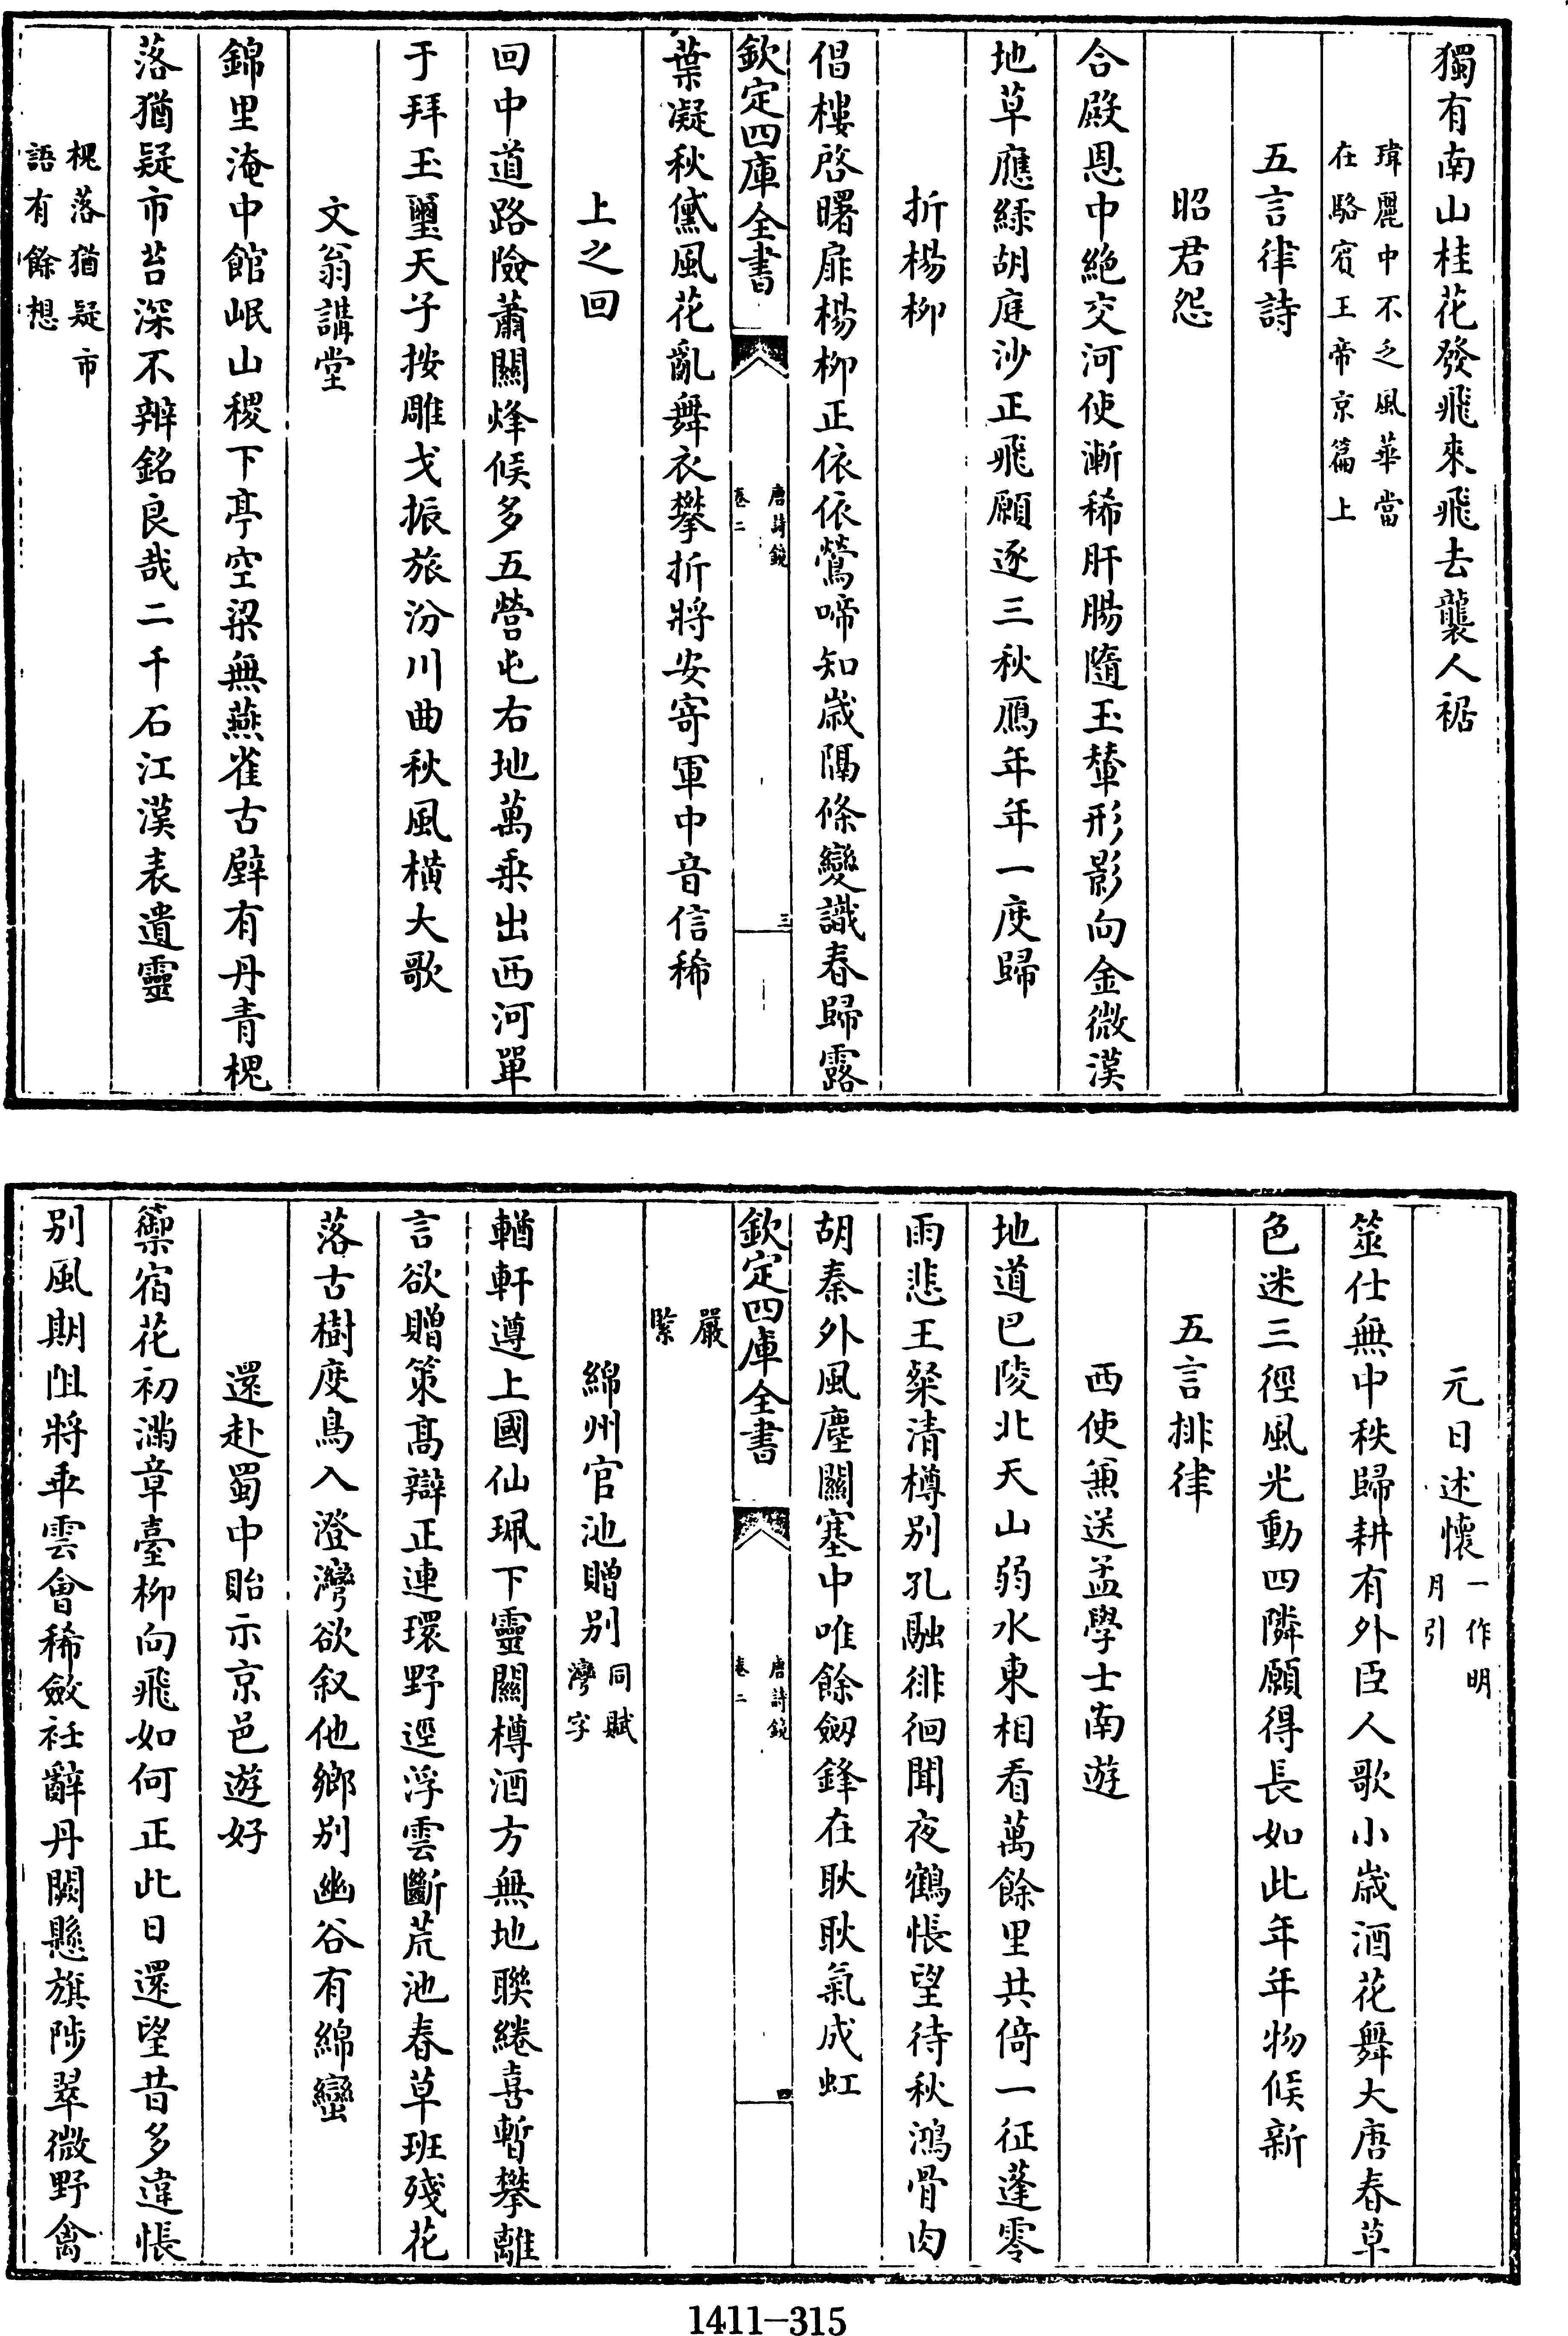 獨有南山桂花發飛來飛去襲人裾
瑋麗中不乏風華當
在駱賓王帝京篇上
五言律詩
昭君怨
合殿恩中絕交河使漸稀肝腸隨玉輦形影向金微漢
地草應綠胡庭沙正飛願逐三秋鴈年年一度歸
折楊柳
倡樓啓曙扉楊柳正依依鶯啼知歲隔條變識春歸露
欽定四庫全書
唐詩鏡
卷二
三
葉凝秋黛風花亂舞衣攀折將安寄軍中音信稀
上之回
回中道路險蕭關烽候多五營屯右地萬乘出西河單
于拜玉璽天子按雕戈振旅汾川曲秋風橫大歌
文翁講堂
錦里淹中館岷山稷下亭空梁無燕雀古壁有丹青槐
落猶疑市苔深不辨銘良哉二千石江漢表遺靈
槐落猶疑市
語有餘想
元日述懷
一作明
月引
筮仕無中秩歸耕有外臣人歌小歲酒花舞大唐春草
色迷三徑風光動四隣願得長如此年年物候新
五言排律
西使兼送孟學士南遊
地道巴陵北天山弱水東相看萬餘里共倚一征蓬零
雨悲王粲清樽別孔融徘徊聞夜鶴悵望待秋鴻骨肉
胡秦外風塵關塞中唯餘劔鋒在耿耿氣成虹
欽定四庫全書
唐詩鏡
卷二
四
嚴
緊
綿州官池贈別
同賦
灣字
輶軒遵上國仙珮下靈關樽酒方無地聯綣喜暫攀離
言欲贈策高辯正連環野逕浮雲斷荒池春草班殘花
落古樹度鳥入澄灣欲叙他鄉別幽谷有綿蠻
還赴蜀中貽示京邑遊好
籞宿花初滿章臺柳向飛如何正此日還望昔多違悵
別風期阻將乖雲會稀斂衽辭丹闕懸旗陟翠微野禽
1411—315